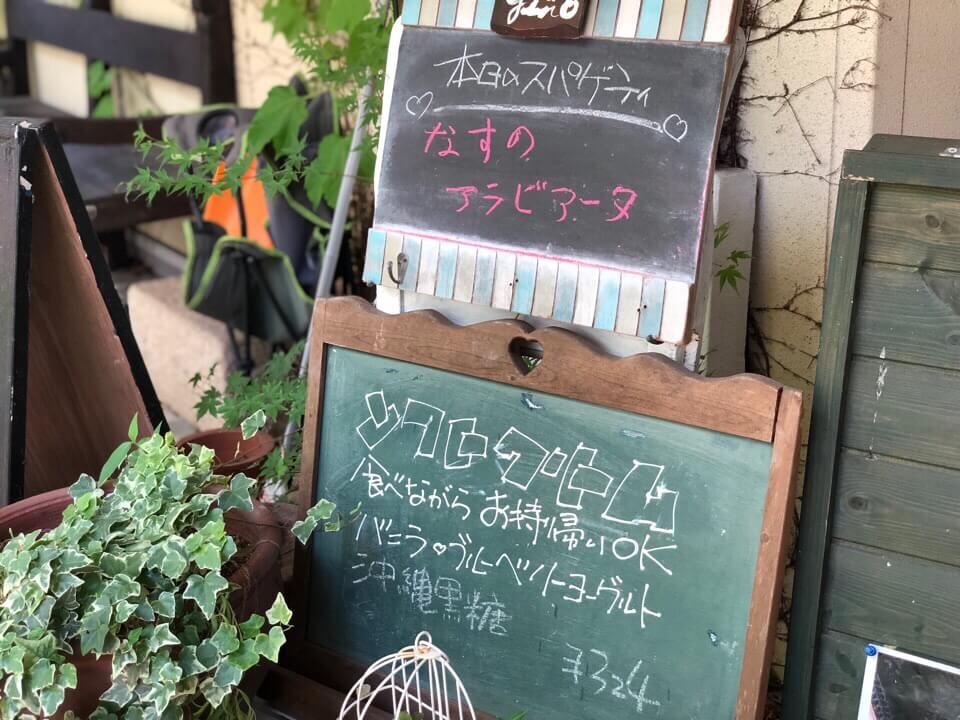 本日のスパゲティ
なすの
アラビアータ
ソフトクリーム
食べながらお持帰りOK
バニラ♡ブルーベリーヨーグルト
沖縄黒糖
¥324